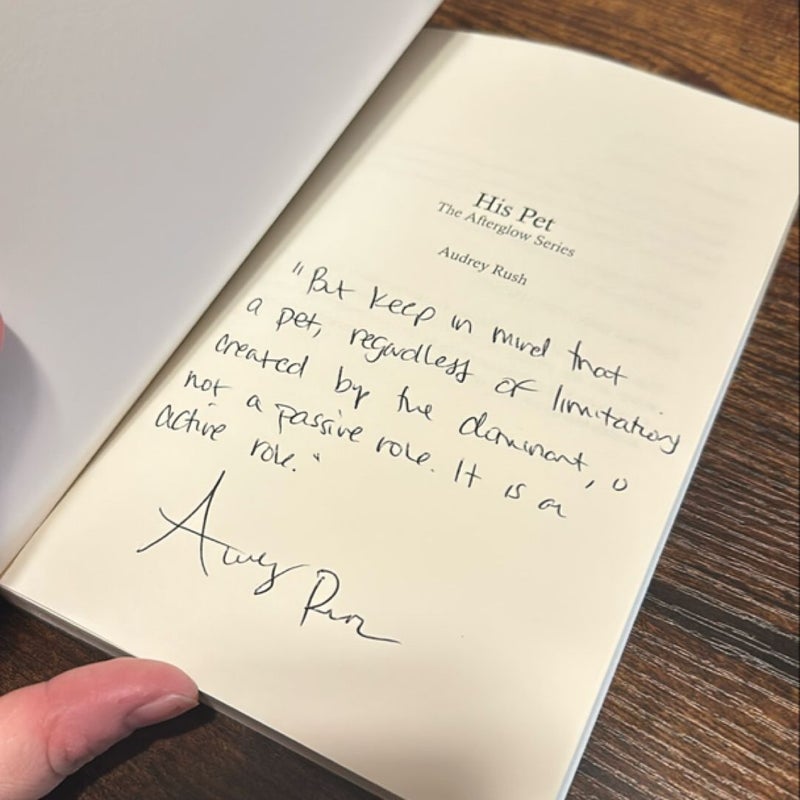 His Pet
The Afterglow Series
Audrey Rush
"But keep in mind that
a pet, regardless of limitations
created by the dominant, is
not a passive role. It is an
active role."
Audrey Rush